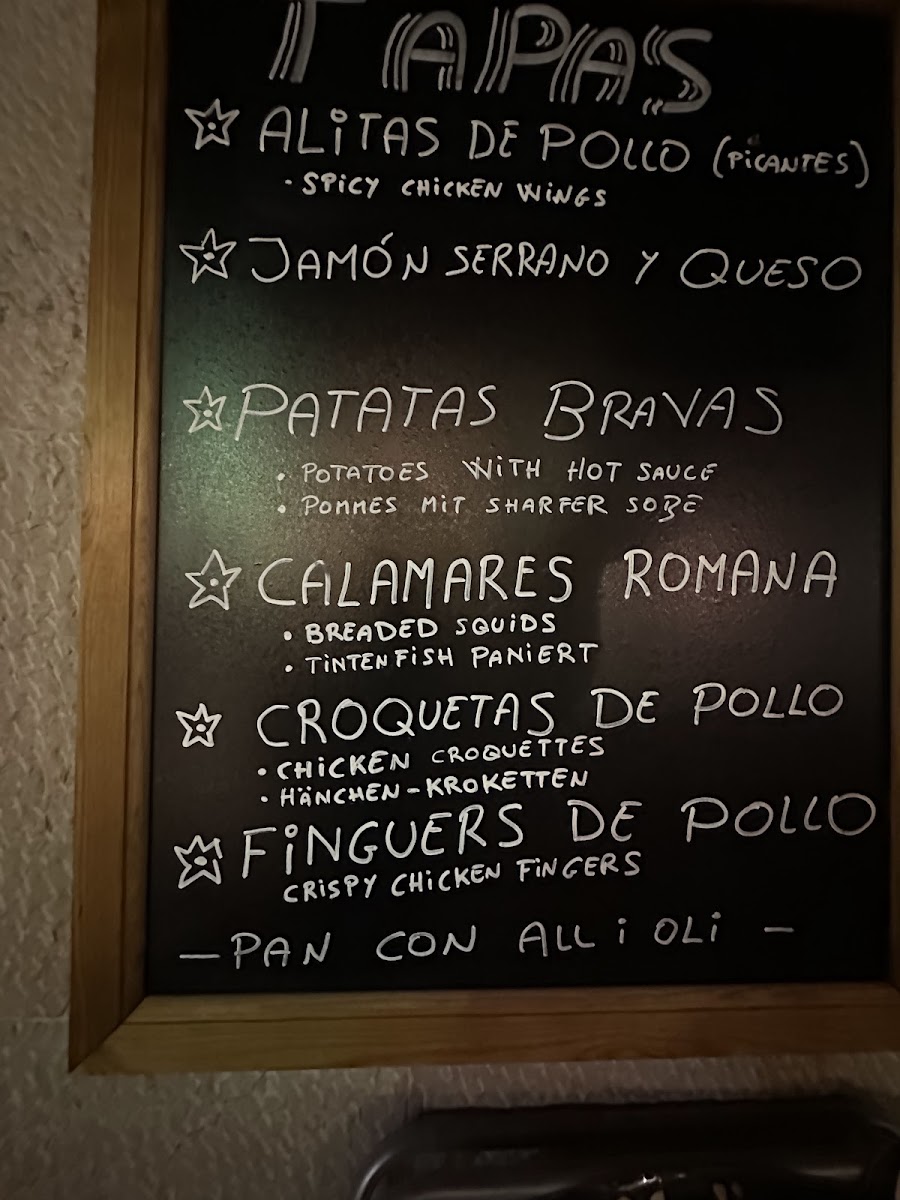 TAPAS
ALITAS DE POLLO (PICANTES)
· SPICY CHICKEN WINGS
JAMÓN SERRANO Y QUESO
PATATAS BRAVAS
· POTATOES WITH HOT SAUCE
· POMMES MIT SHARFER SOßE
CALAMARES ROMANA
· BREADED SQUIDS
· TINTENFISH PANIERT
CROQUETAS DE POLLO
· CHICKEN CROQUETTES
· HÄNCHEN-KROKETTEN
FINGUERS DE POLLO
CRISPY CHICKEN FINGERS
— PAN CON ALL i OLI —